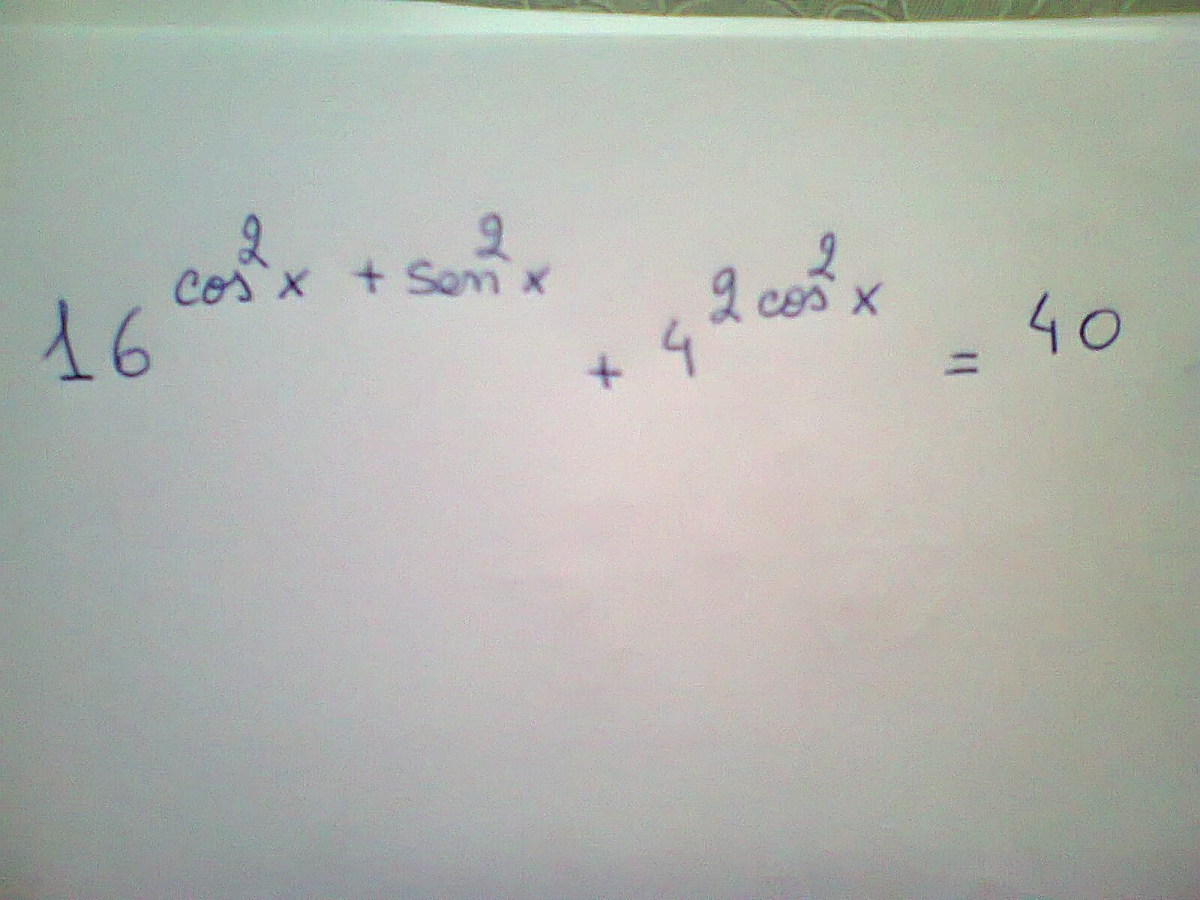 16^{cos^2 x + sen^2 x} + 4^{2 cos^2 x} = 40